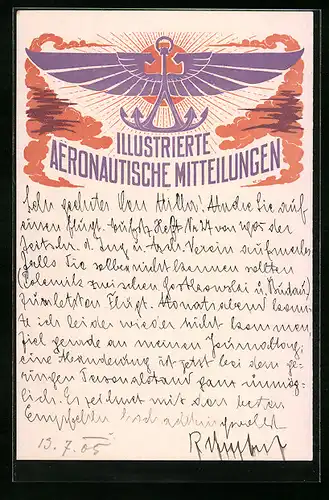 ILLUSTRIERTE
AËRONAUTISCHE MITTEILUNGEN
Sehr geehrter Herr Hiller! Mache Sie auf
einen Flugt. Aufsatz Heft Nr. 24 von 1905 der
Zeitschr. d. Ing. u. Arch. Verein aufmerks.
falls Sie selben nicht kennen sollten
(Polemik zwischen
zum letzten Flugt. Monatsabend konn-
te ich leider wieder nicht kommen,
viel gerade an meinen Journaltag,
eine Aenderung ist jetzt bei dem ge-
ringen Personalstand ganz unmög-
lich. Es zeichnet mit den besten
Empfehlen hochachtungsvollst
13. 7. 05